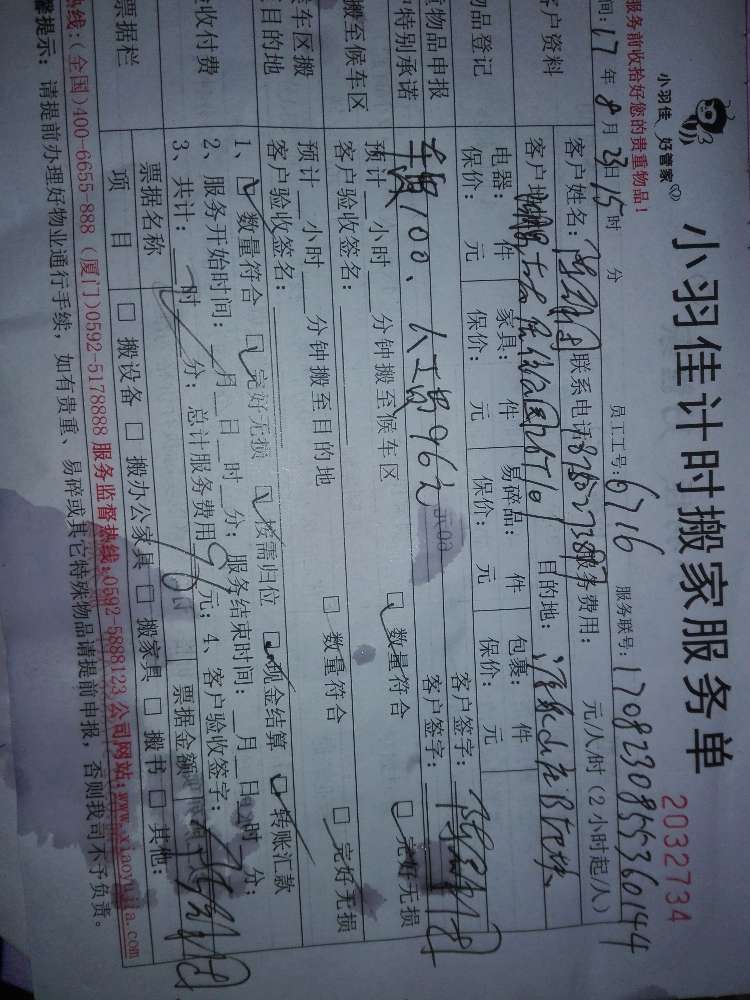 小羽佳 好管家
小羽佳计时搬家服务单
2032734
服务前收拾好您的贵重物品!
员工工号: 6716 服务联号: 1708230855360144
间: 17 年 8 月 23 日 15 时 分
客户资料 客户姓名: 联系电话: 服务费用: 元/八/时 (2小时起/八)
客户地 目的地:
物品登记 电器: 件 家具: 件 易碎品: 件 包裹: 件
保价: 元 保价: 元 保价: 元 保价: 元
重物品申报 客户签字:
特别承诺 车费100、人工费962 客户签字:
搬至候车区 预计 小时 分钟搬至候车区 □ 数量符合 □ 完好无损
客户验收签名:
候车区搬至目的地 预计 小时 分钟搬至目的地 □ 数量符合 □ 完好无损
客户验收签名:
验收付费 1、□ 数量符合 □ 完好无损 □ 按需归位 □ 现金结算 □ 转账汇款
2、服务开始时间: 月 日 时 分; 服务结束时间: 月 日 时 分;
3、共计: 时 分; 总计服务费用 元; 4、客户验收签字:
票据栏 票据名称 票据金额
项 目 □ 搬设备 □ 搬办公家具 □ 搬家具 □ 搬书 □ 其他:
热线: (全国)400-6655-888 (厦门)0592-5178888 服务监督热线: 0592-5888123 公司网站: www.xiaoyujia.com
馨提示: 请提前办理好物业通行手续, 如有贵重、易碎或其它特殊物品请提前申报, 否则我司不予负责。